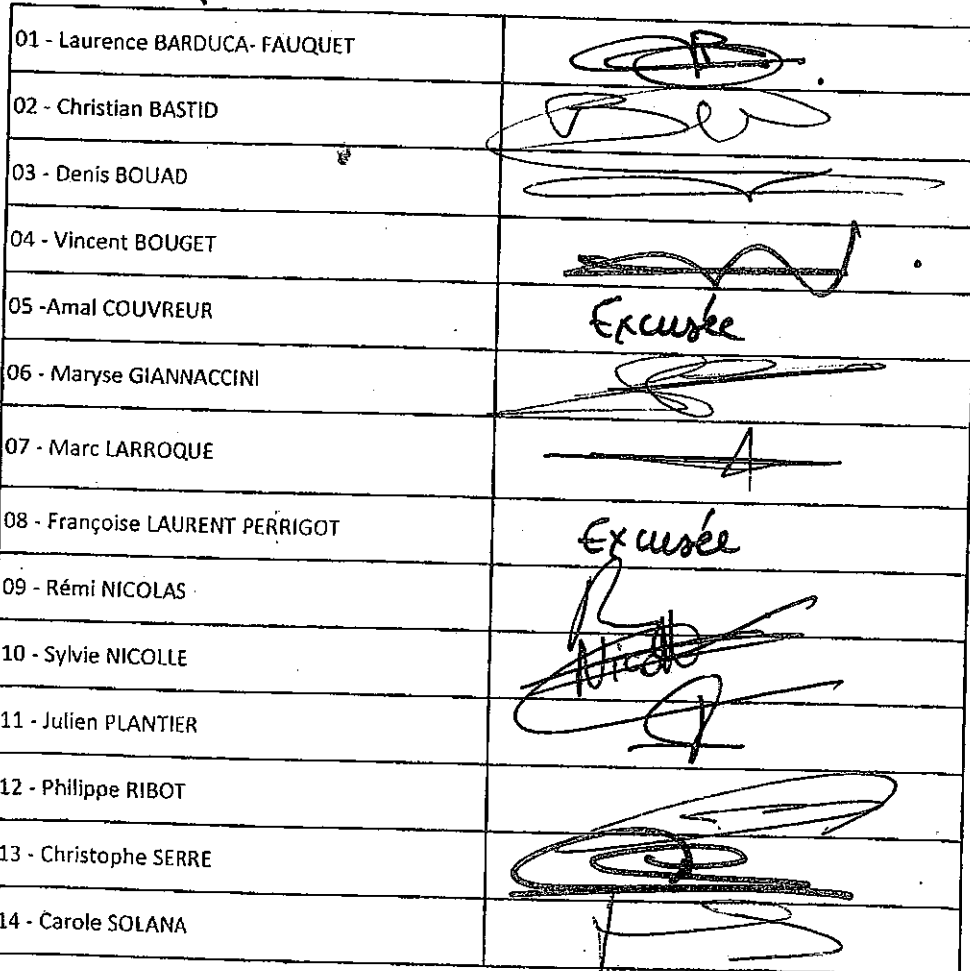 01 - Laurence BARDUCA- FAUQUET
02 - Christian BASTID
03 - Denis BOUAD
04 - Vincent BOUGET
05 -Amal COUVREUR Excusée
06 - Maryse GIANNACCINI
07 - Marc LARROQUE
08 - Françoise LAURENT PERRIGOT Excusée
09 - Rémi NICOLAS
10 - Sylvie NICOLLE
11 - Julien PLANTIER
12 - Philippe RIBOT
13 - Christophe SERRE
14 - Carole SOLANA